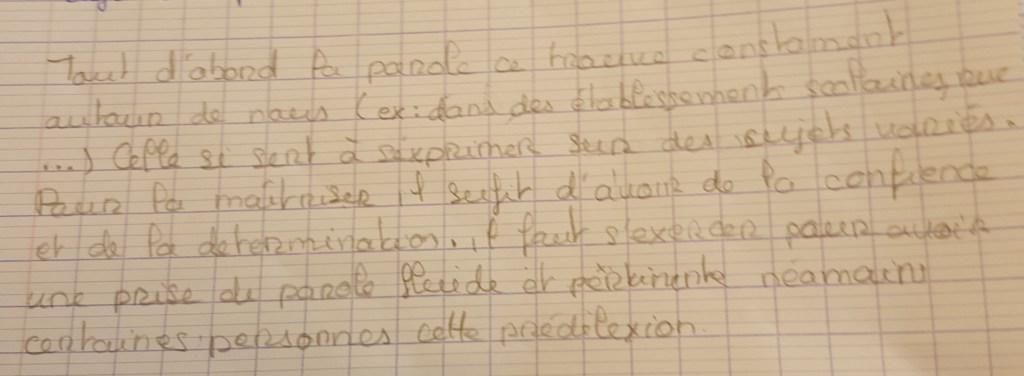 Tout d'abord la parole ce trouve constament
autour de nous (ex: dans des étable
...) Celle si sert à s'exprimer sur des sujets variés.
Pour la maitriser il sufit d'avoir de la confience
et de la determination. il faut s'exercer pour avoir
une prise de parole fluide et pertinente néamains
certaines personnes cette prédilexion.